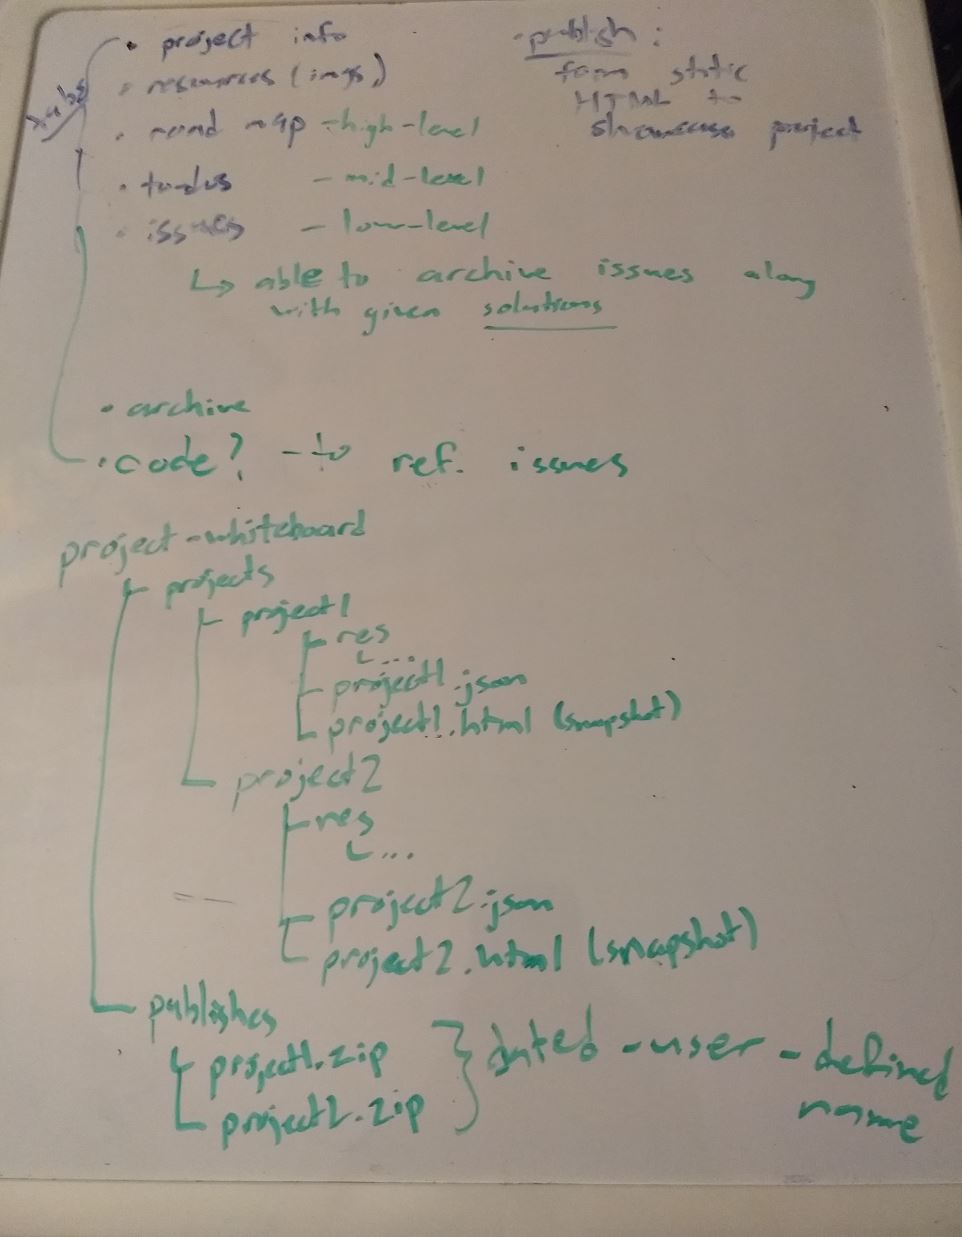 tabs
• project info
• resources (imgs)
• road map - high-level
• todos - mid-level
• issues - low-level
↳ able to archive issues along
with given solutions
• archive
• code? - to ref. issues
• publish:
form static
HTML to
showcase project
project-whiteboard
projects
project1
res
...
project1.json
project1.html (snapshot)
project2
res
...
project2.json
project2.html (snapshot)
publishes
project1.zip
project2.zip
} dated - user - defined
name